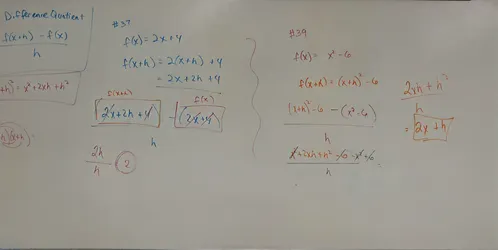 Difference Quotient
f(x+h) - f(x)
h
+h)² = x² + 2xh + h²
(x+h) =
#37
f(x) = 2x + 4
f(x+h) = 2(x+h) + 4
= 2x + 2h + 4
f(x+h)
f(x)
2x + 2h + 4
- 2x + 4
h
2h
h
2
#39
f(x) = x² - 6
f(x+h) = (x+h)² - 6
(x+h)² - 6 - (x² - 6)
h
x² + 2xh + h² - 6 - x² + 6
h
2xh + h²
h
= 2x + h